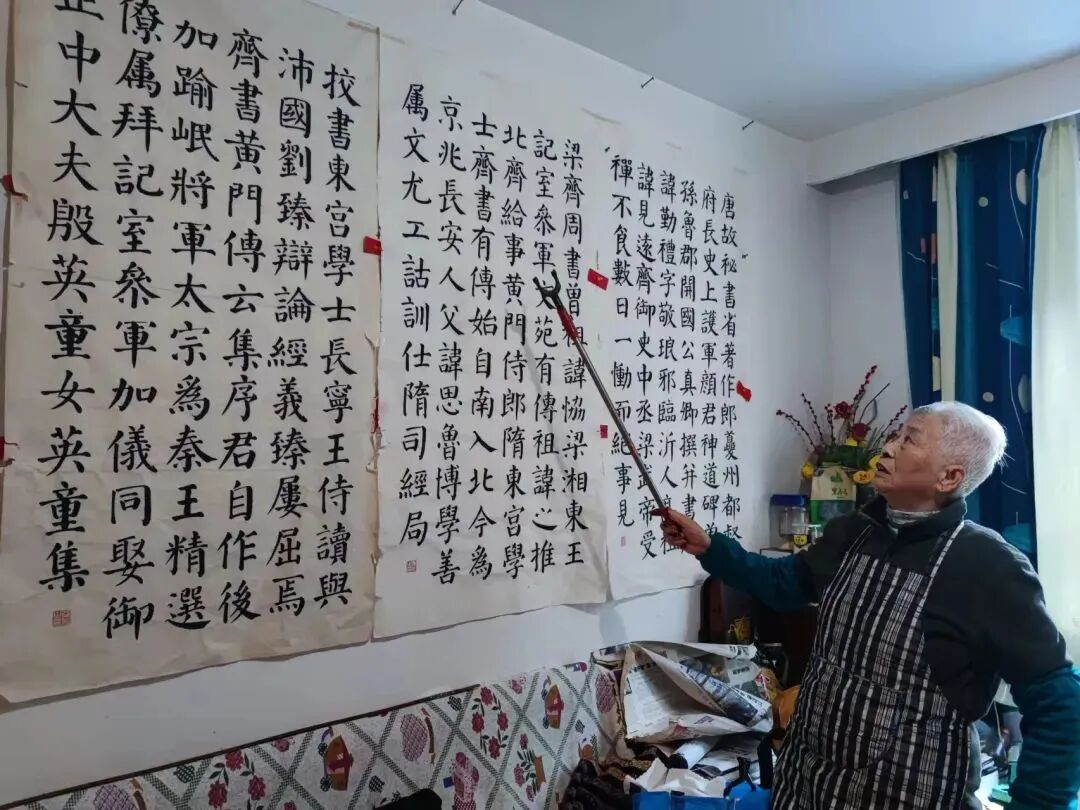 唐故秘書省著作郎夔州都督
府長史上護軍顏君神道碑
孫魯郡開國公真卿撰并書
諱勤禮字敬琅邪臨沂人高祖
諱見遠齊御史中丞梁武帝受
禪不食數日一慟而絕事見
梁齊周書曾祖諱協梁湘東王
記室叅軍文苑有傳祖諱之推
北齊給事黃門侍郎隋東宮學
士齊書有傳始自南入北今爲
京兆長安人父諱思魯博學善
属文尤工詁訓仕隋司經局
挍書東宮學士長寧王侍讀與
沛國劉臻辯論經義臻屢屈焉
齊書黃門傳云集序君自作後
加踰岷將軍太宗爲秦王精選
僚属拜記室叅軍加儀同娶御
正中大夫殷英童女英童集